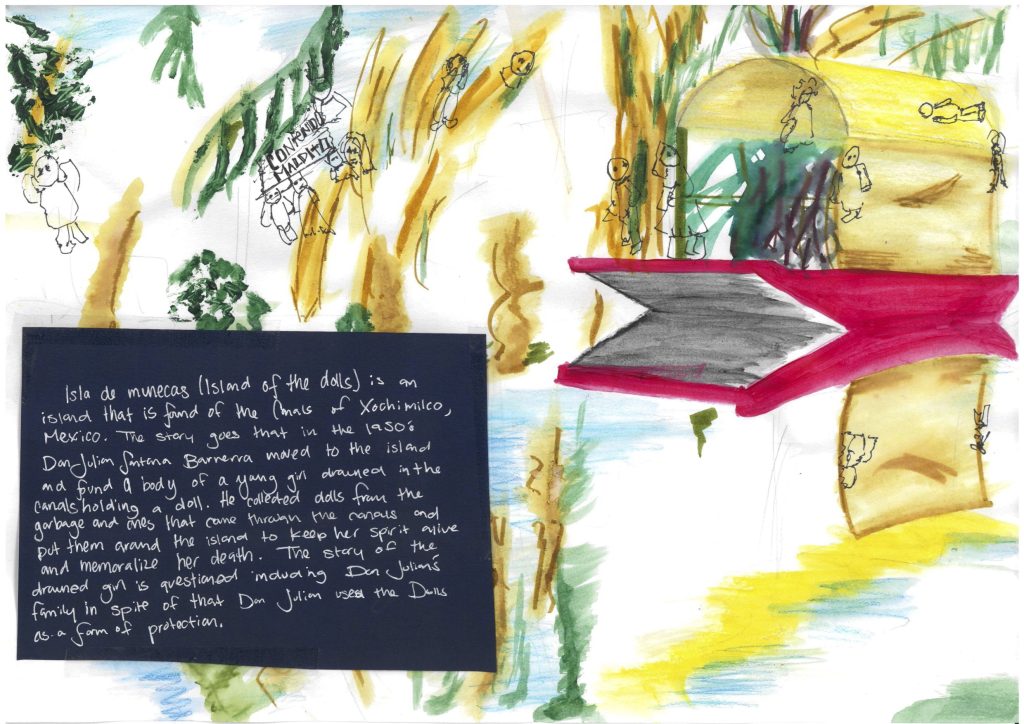 CONTENIDO
MALDITO
Isla de munecas (Island of the dolls) is an
island that is found of the Canals of Xochimilco,
Mexico. The story goes that in the 1950's
Don Julian Santana Barnerra moved to the island
and found a body of a young girl drowned in the
canals holding a doll. He collected dolls from the
garbage and ones that came through the canals and
put them around the island to keep her spirit alive
and memoralize her death. The story of the
drowned girl is questioned including Don Julian's
family in spite of that Don Julian uses the Dolls
as a form of protection.